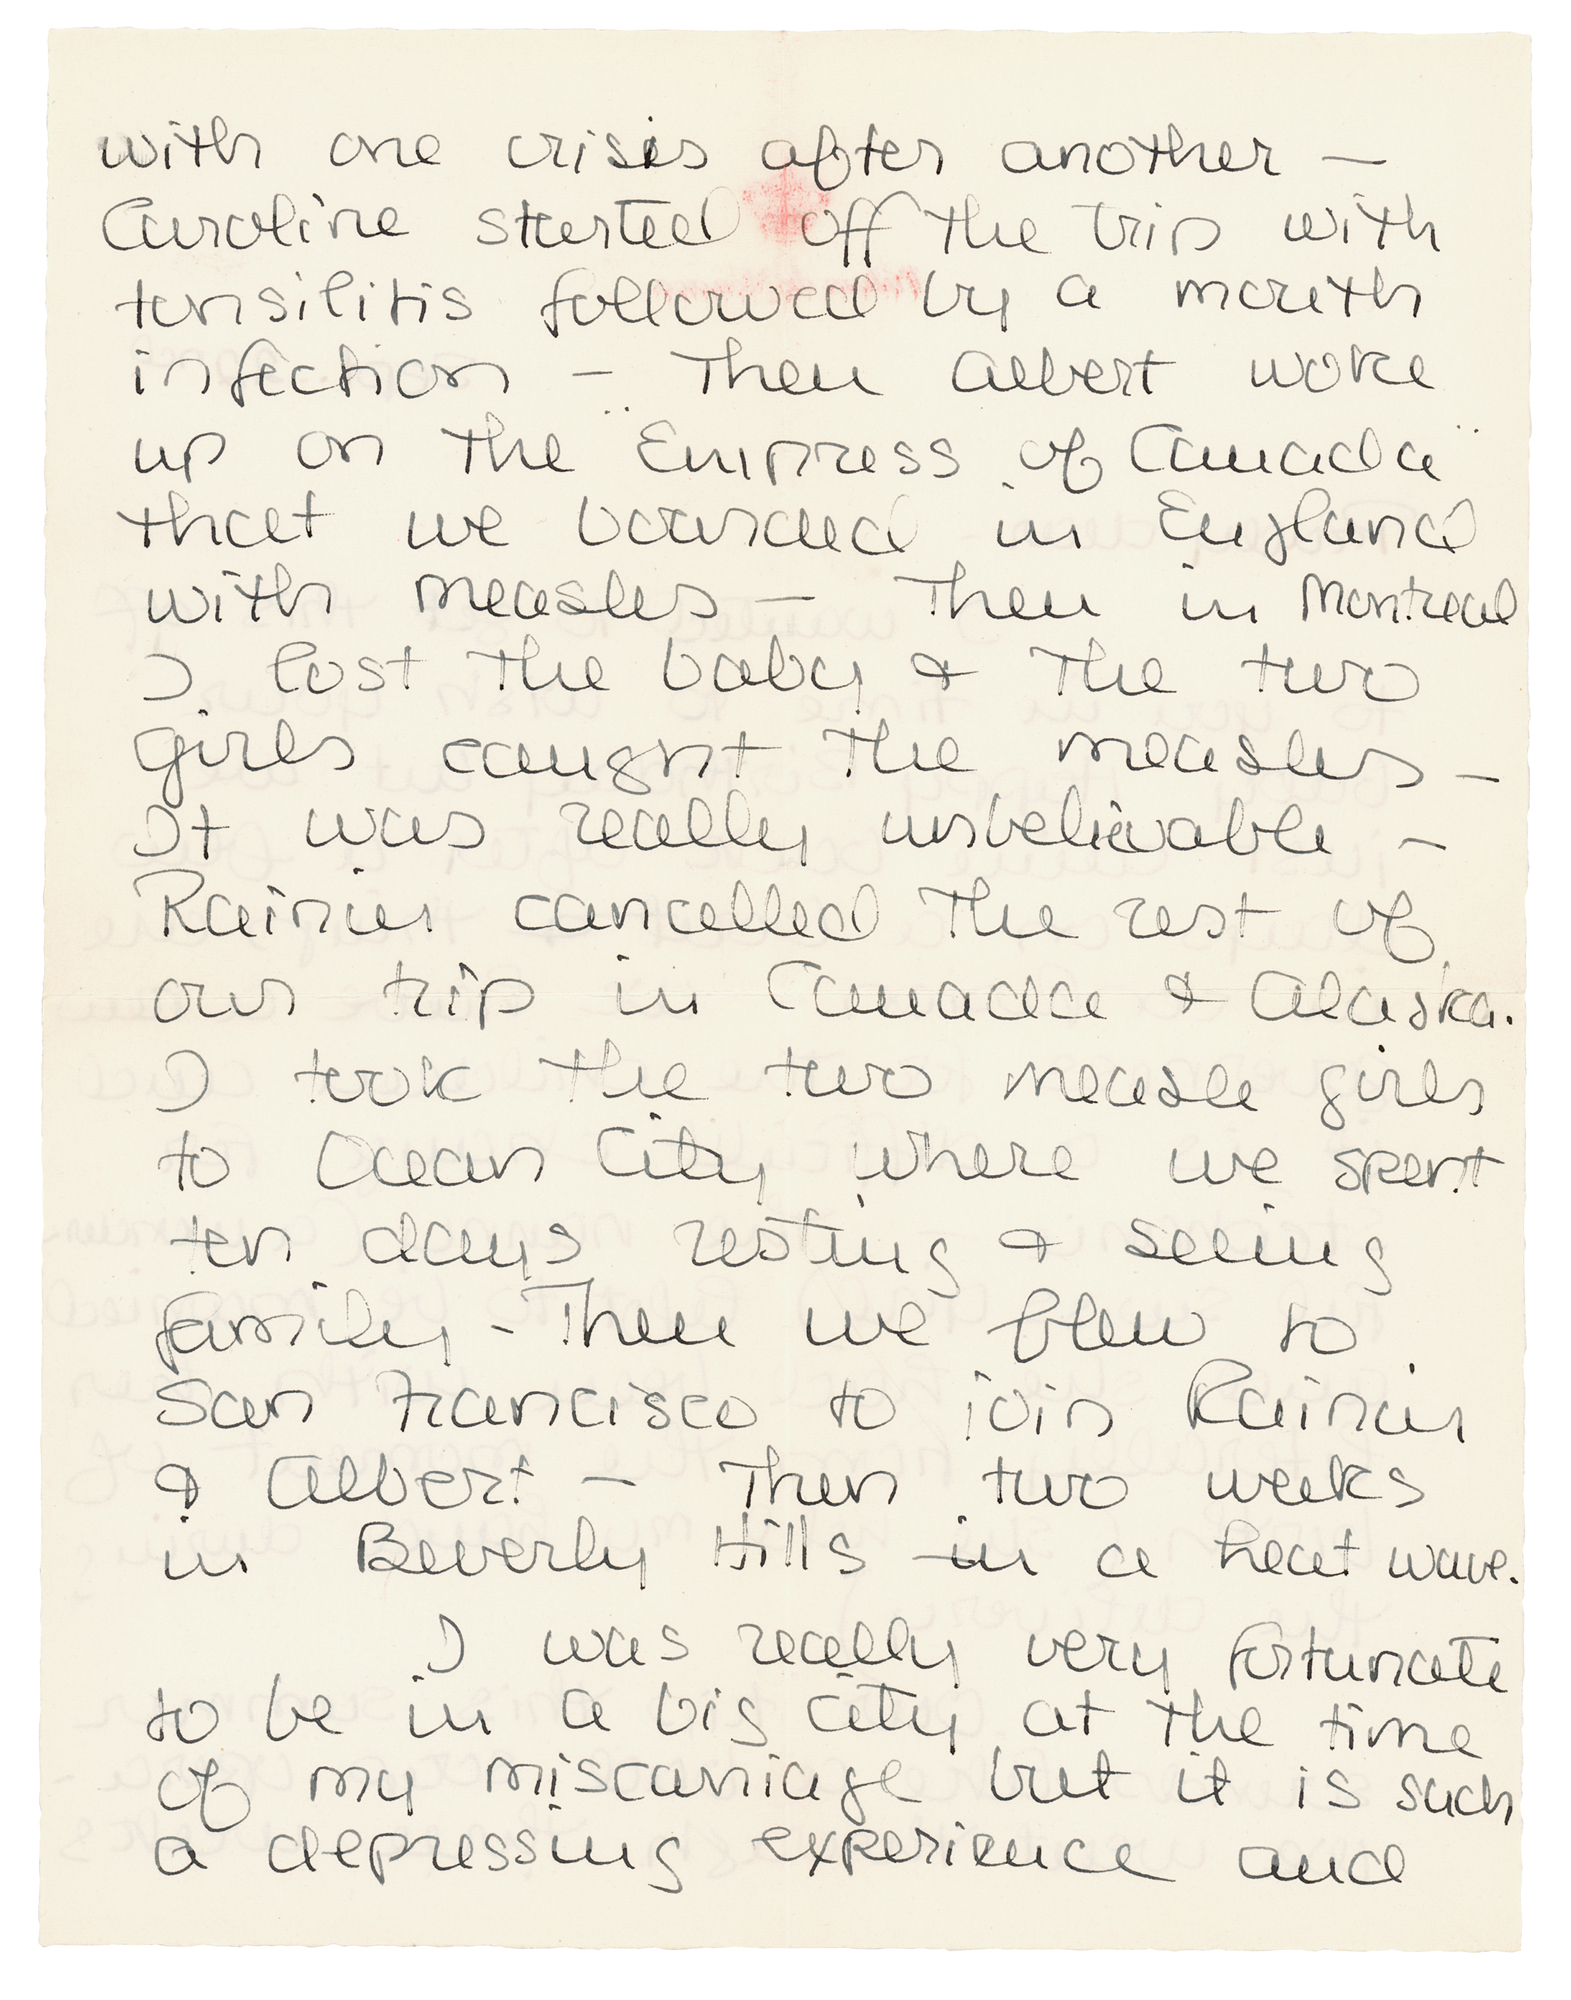 with one crisis after another —
Caroline started off the trip with
tonsilitis followed by a mouth
infection — Then Albert woke
up on the "Empress of Canada"
that we boarded in England
with measles — Then in Montreal
I lost the baby & the two
girls caught the measles —
It was really unbelievable —
Rainier cancelled the rest of
our trip in Canada & Alaska.
I took the two measle girls
to Ocean City where we spent
ten days resting & seeing
family - Then we flew to
San Francisco to join Rainier
& Albert — Then two weeks
in Beverly Hills in a heat wave.
I was really very fortunate
to be in a big city at the time
of my miscarriage but it is such
a depressing experience and